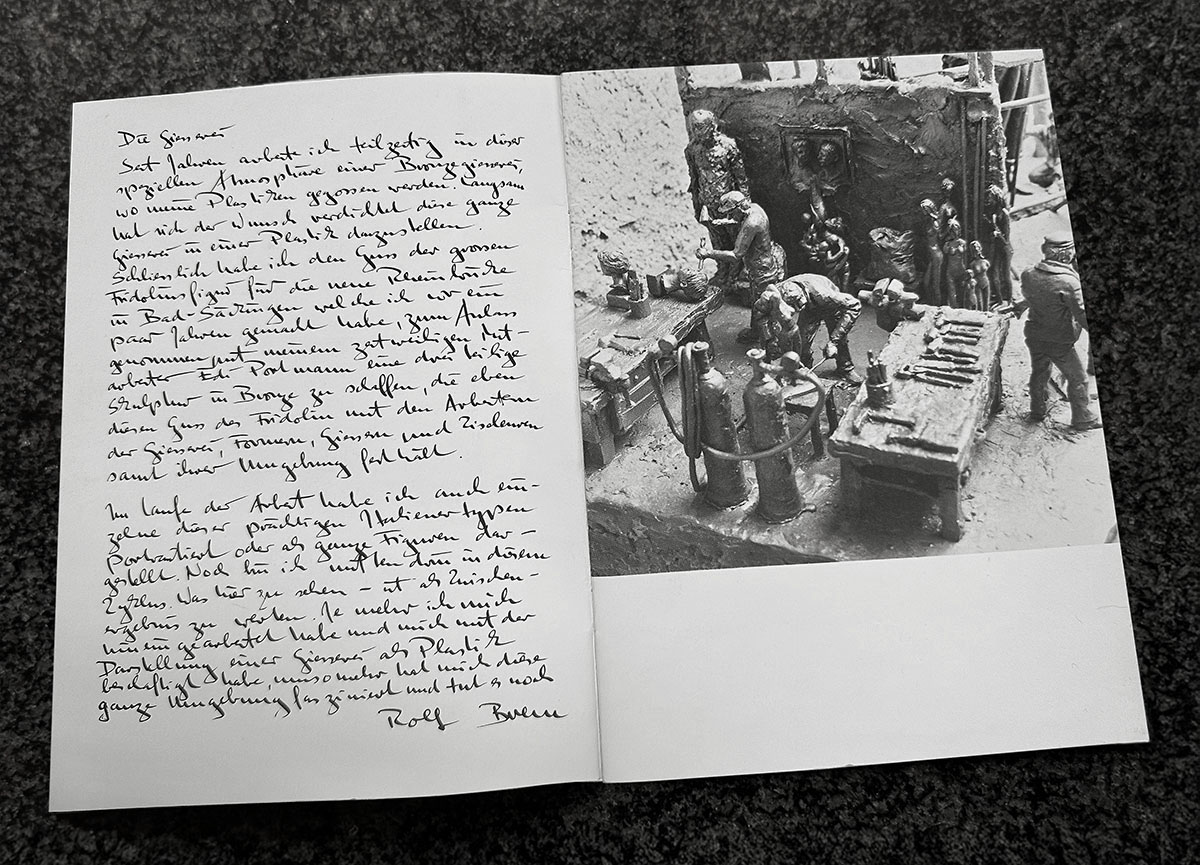 Die Giesserei
Seit Jahren arbeite ich teilzeitig in dieser
speziellen Atmosphäre einer Bronzegiesserei,
wo meine Plastiken gegossen werden. Langsam
hat sich der Wunsch verdichtet diese ganze
Giesserei in einer Plastik darzustellen.
Schliesslich habe ich den Guss der grossen
Fridolinsfigur für die neue Rheinbrücke
in Bad-Säckingen welche ich vor ein
paar Jahren gemacht habe, zum Anlass
genommen mit meinem zeitweiligen Mit-
arbeiter Edi Portmann eine drei teilige
Skulptur in Bronze zu schaffen, die eben
diesen Guss des Fridolin mit den Arbeitern
der Giesserei, Formern, Giessern und Ziseleuren
samt ihrer Umgebung festhält.
Im Laufe der Arbeit habe ich auch ein-
zelne dieser prächtigen Italienertypen
portraitiert oder als ganze Figuren dar-
gestellt. Noch bin ich mitten drin in diesem
Zyklus. Was hier zu sehen - ist als Zwischen-
ergebnis zu werten. Je mehr ich mich
hineingearbeitet habe und mich mit der
Darstellung einer Giesserei als Plastik
beschäftigt habe, umsomehr hat mich diese
ganze Umgebung fasziniert und tut es noch
Rolf Brem